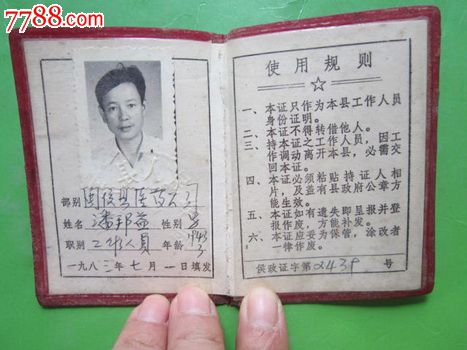 7788.com
部别 闽侯县医药公司
姓名 潘邦益 性别 男
职别 工作人员 年龄
一九八三年七月一日填发
使用规则
☆
一、本证只作为本县工作人员
身份证明。
二、本证不得转借他人。
三、持本证之工作人员，因工
作调动离开本县，必需交
回本证。
四、本证必须粘贴持证人相
片，及盖有县政府公章方
能生效。
五、本证如有遗失即呈报并登
报作废，方能补发。
六、本证应妥为保管，涂改者
一律作废。
侯政证字第2439号